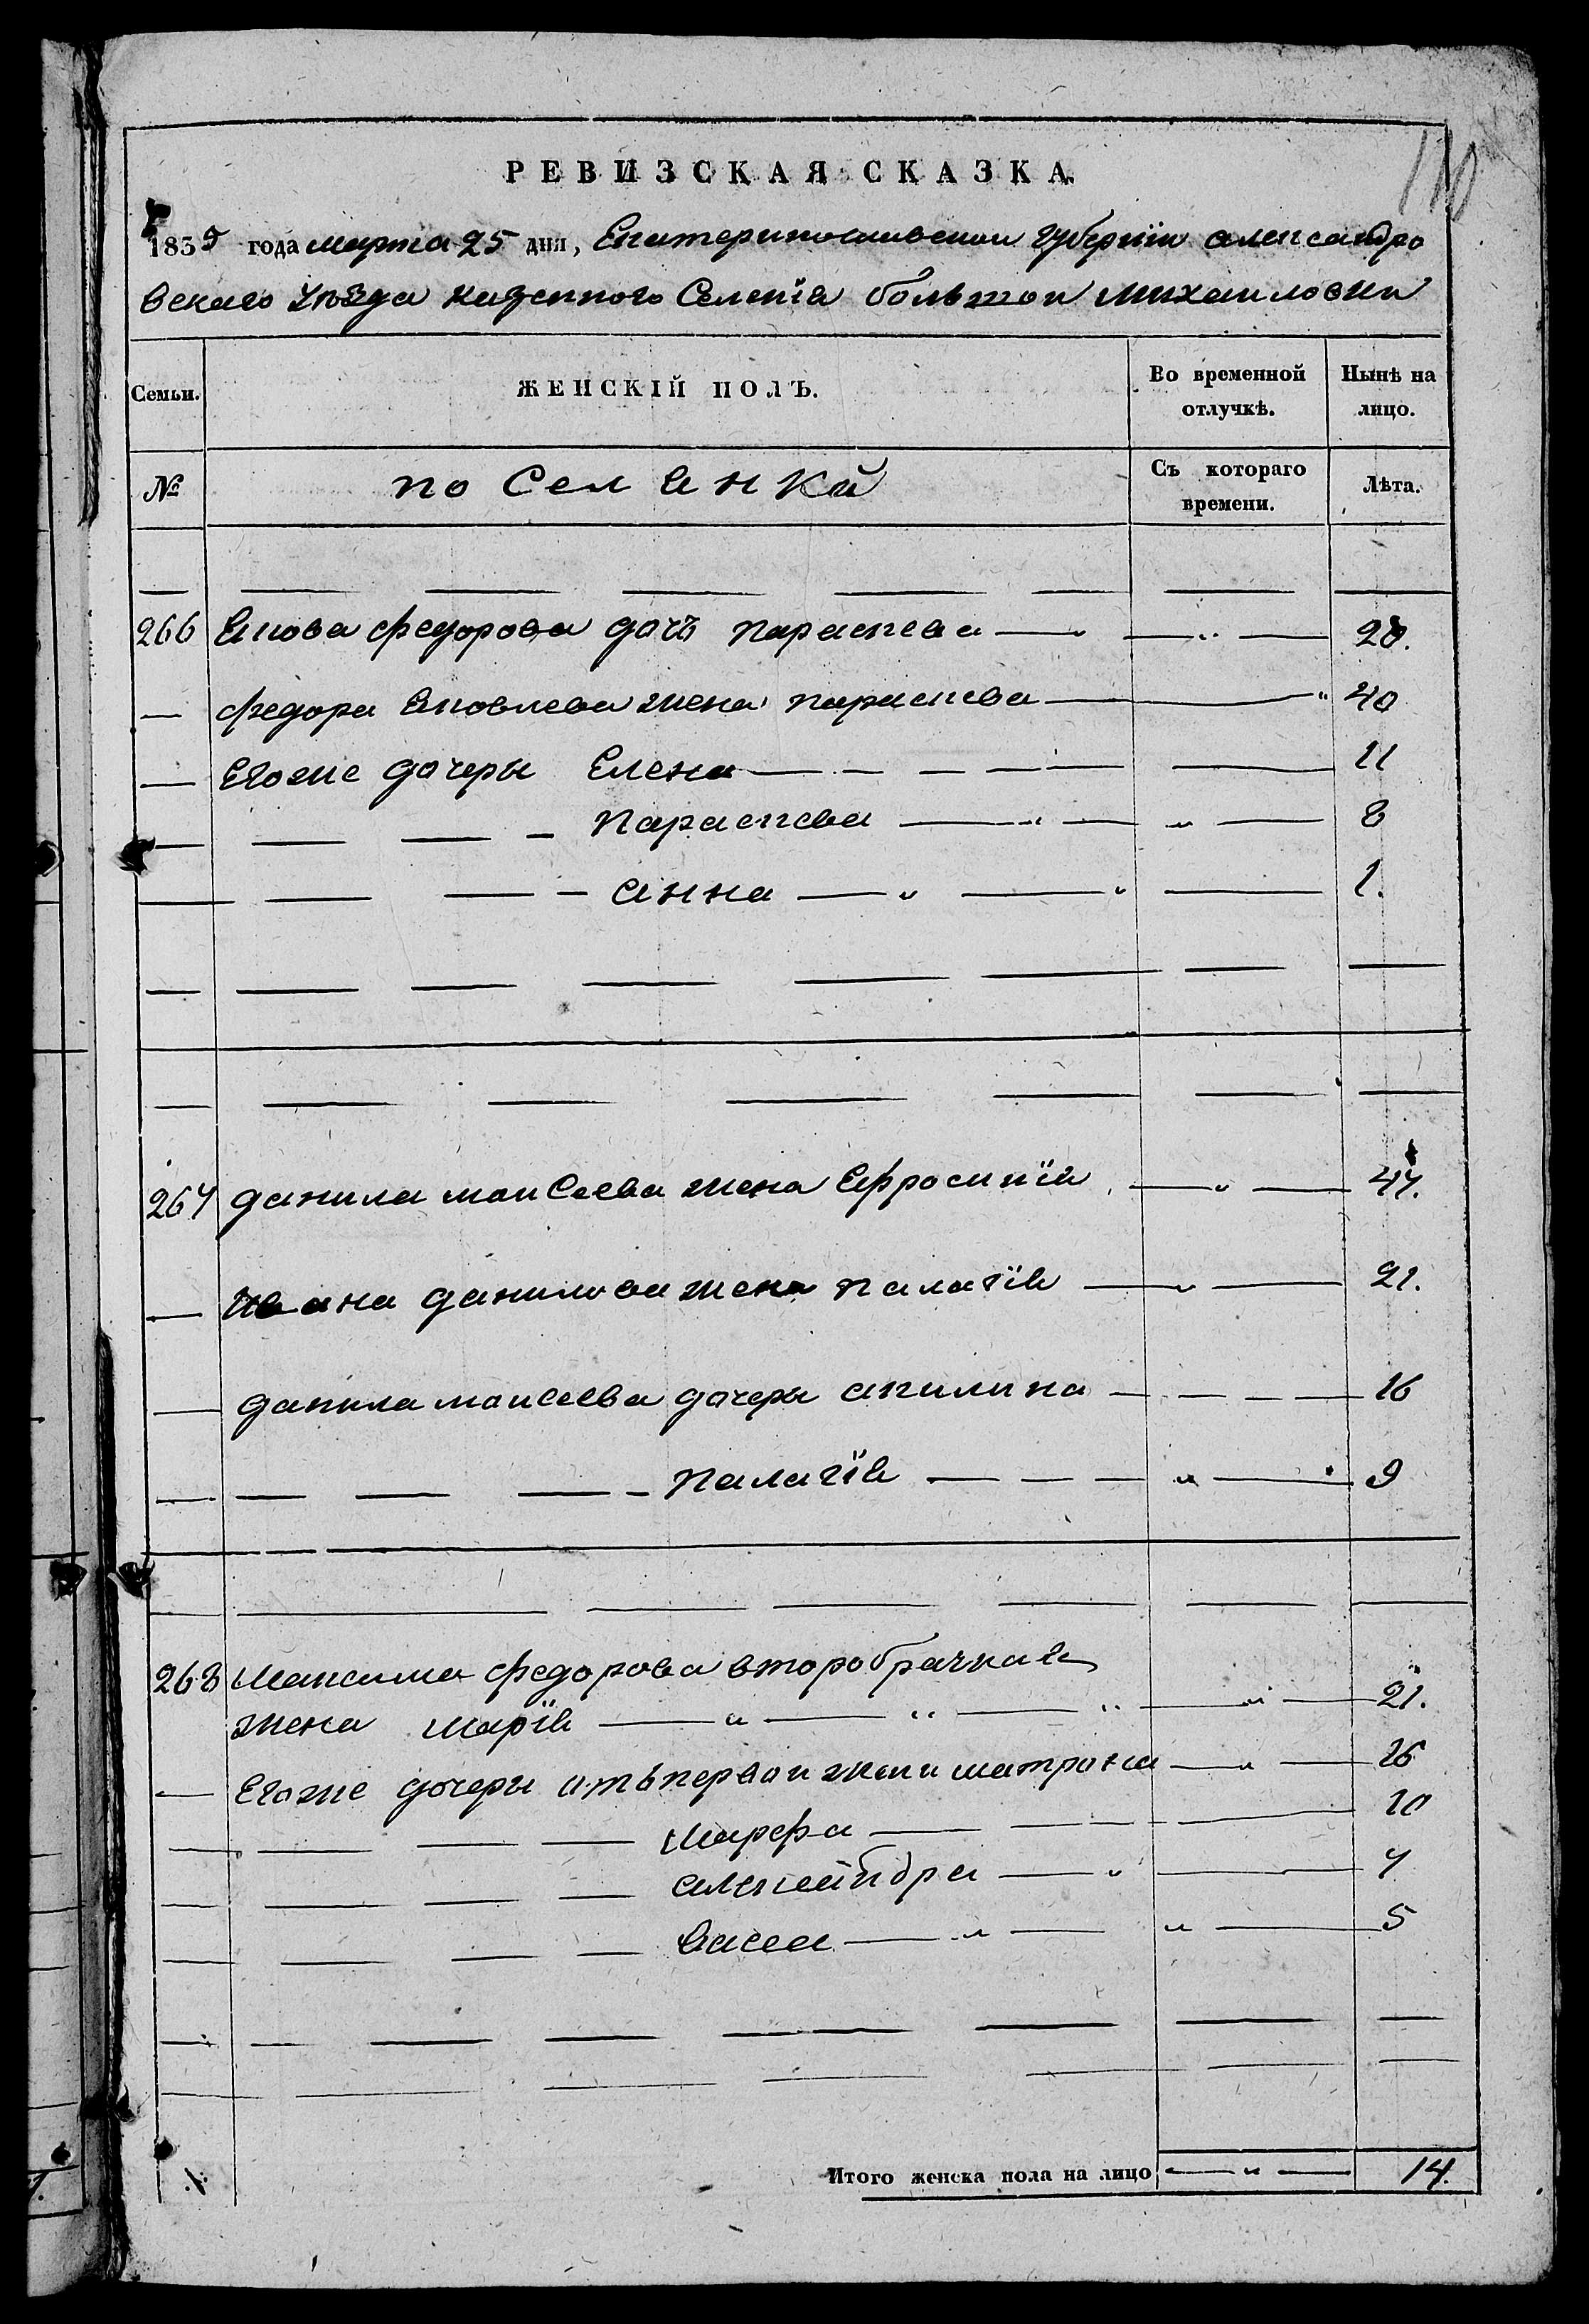 РЕВИЗСКАЯ СКАЗКА.
1835 года марта 25 дня, Екатеринославской губернїи александро
вскаго Уѣзда казенного Селенїя большой михайловки
Семьи. ЖЕНСКІЙ ПОЛЪ. Во временной отлучкѣ. Нынѣ на лицо.
№ поселянкй Съ котораго времени. Лѣта.
266 Якова федорова дочъ параскева 20.
федора Яковлева жена параскева 40
Егоже дочеры Елена 11
параскева 8
анна 1.
267 данила моисеева жена Ефросинїя 47.
Ивана данилова жена палагїя 21.
данила моисеева дочеры акилина 16
палагїя 9
268 Максима федорова второбрачная
жена марїя 21.
Егоже дочеры отъ первой жени матрона 16
марфа 10
александра 7
Васса 5
Итого женска пола на лицо 14.